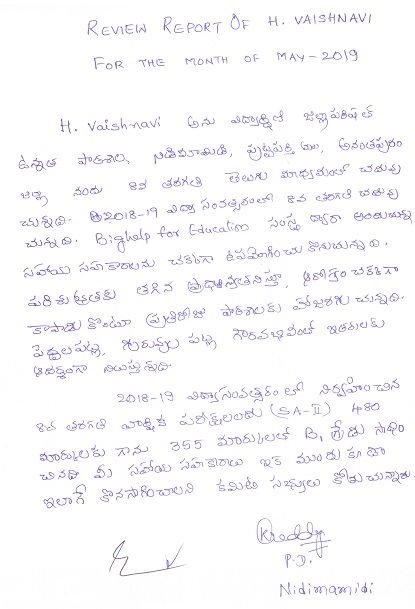 REVIEW REPORT OF H. VAISHNAVI
FOR THE MONTH OF MAY-2019
H. Vaishnavi అను విద్యార్థిని జిల్లాపరిషత్
ఉన్నత పాఠశాల, నిడిమామిడి, పుట్టపర్తి మం, అనంతపురం
జిల్లా నందు 8వ తరగతి తెలుగు మాధ్యమంలో చదువు
చున్నది. 2018-19 విద్యా సంవత్సరంలో 8వ తరగతి చదువు
చున్నది. Bighelp for Education సంస్థ ద్వారా అందుచున్న
సహాయ సహకారాలను చక్కగా ఉపయోగించు కొనుచున్నది.
పరిశుభ్రతకు తగిన ప్రాధాన్యతనిస్తూ, ఆరోగ్యం చక్కగా
కాపాడు కొంటూ ప్రతిరోజు పాఠశాలకు హాజరగు చున్నది.
పెద్దలపట్ల, గురువుల పట్ల గౌరవభావంతో ఇతరులకు
ఆదర్శంగా నిలుస్తున్నది.
2018-19 విద్యాసంవత్సరం లో నిర్వహించిన
8వ తరగతి వార్షిక పరీక్షలందు (SA-II) 480
మార్కులకు గాను 355 మార్కులతో B1 గ్రేడు సాధిం
చినది మీ సహాయ సహకారాలు ఇక ముందు కూడా
ఇలాగే కొనసాగించాలని కమిటీ సభ్యులు కోరుచున్నారు.
KReddy
P.D.
Nidimamidi